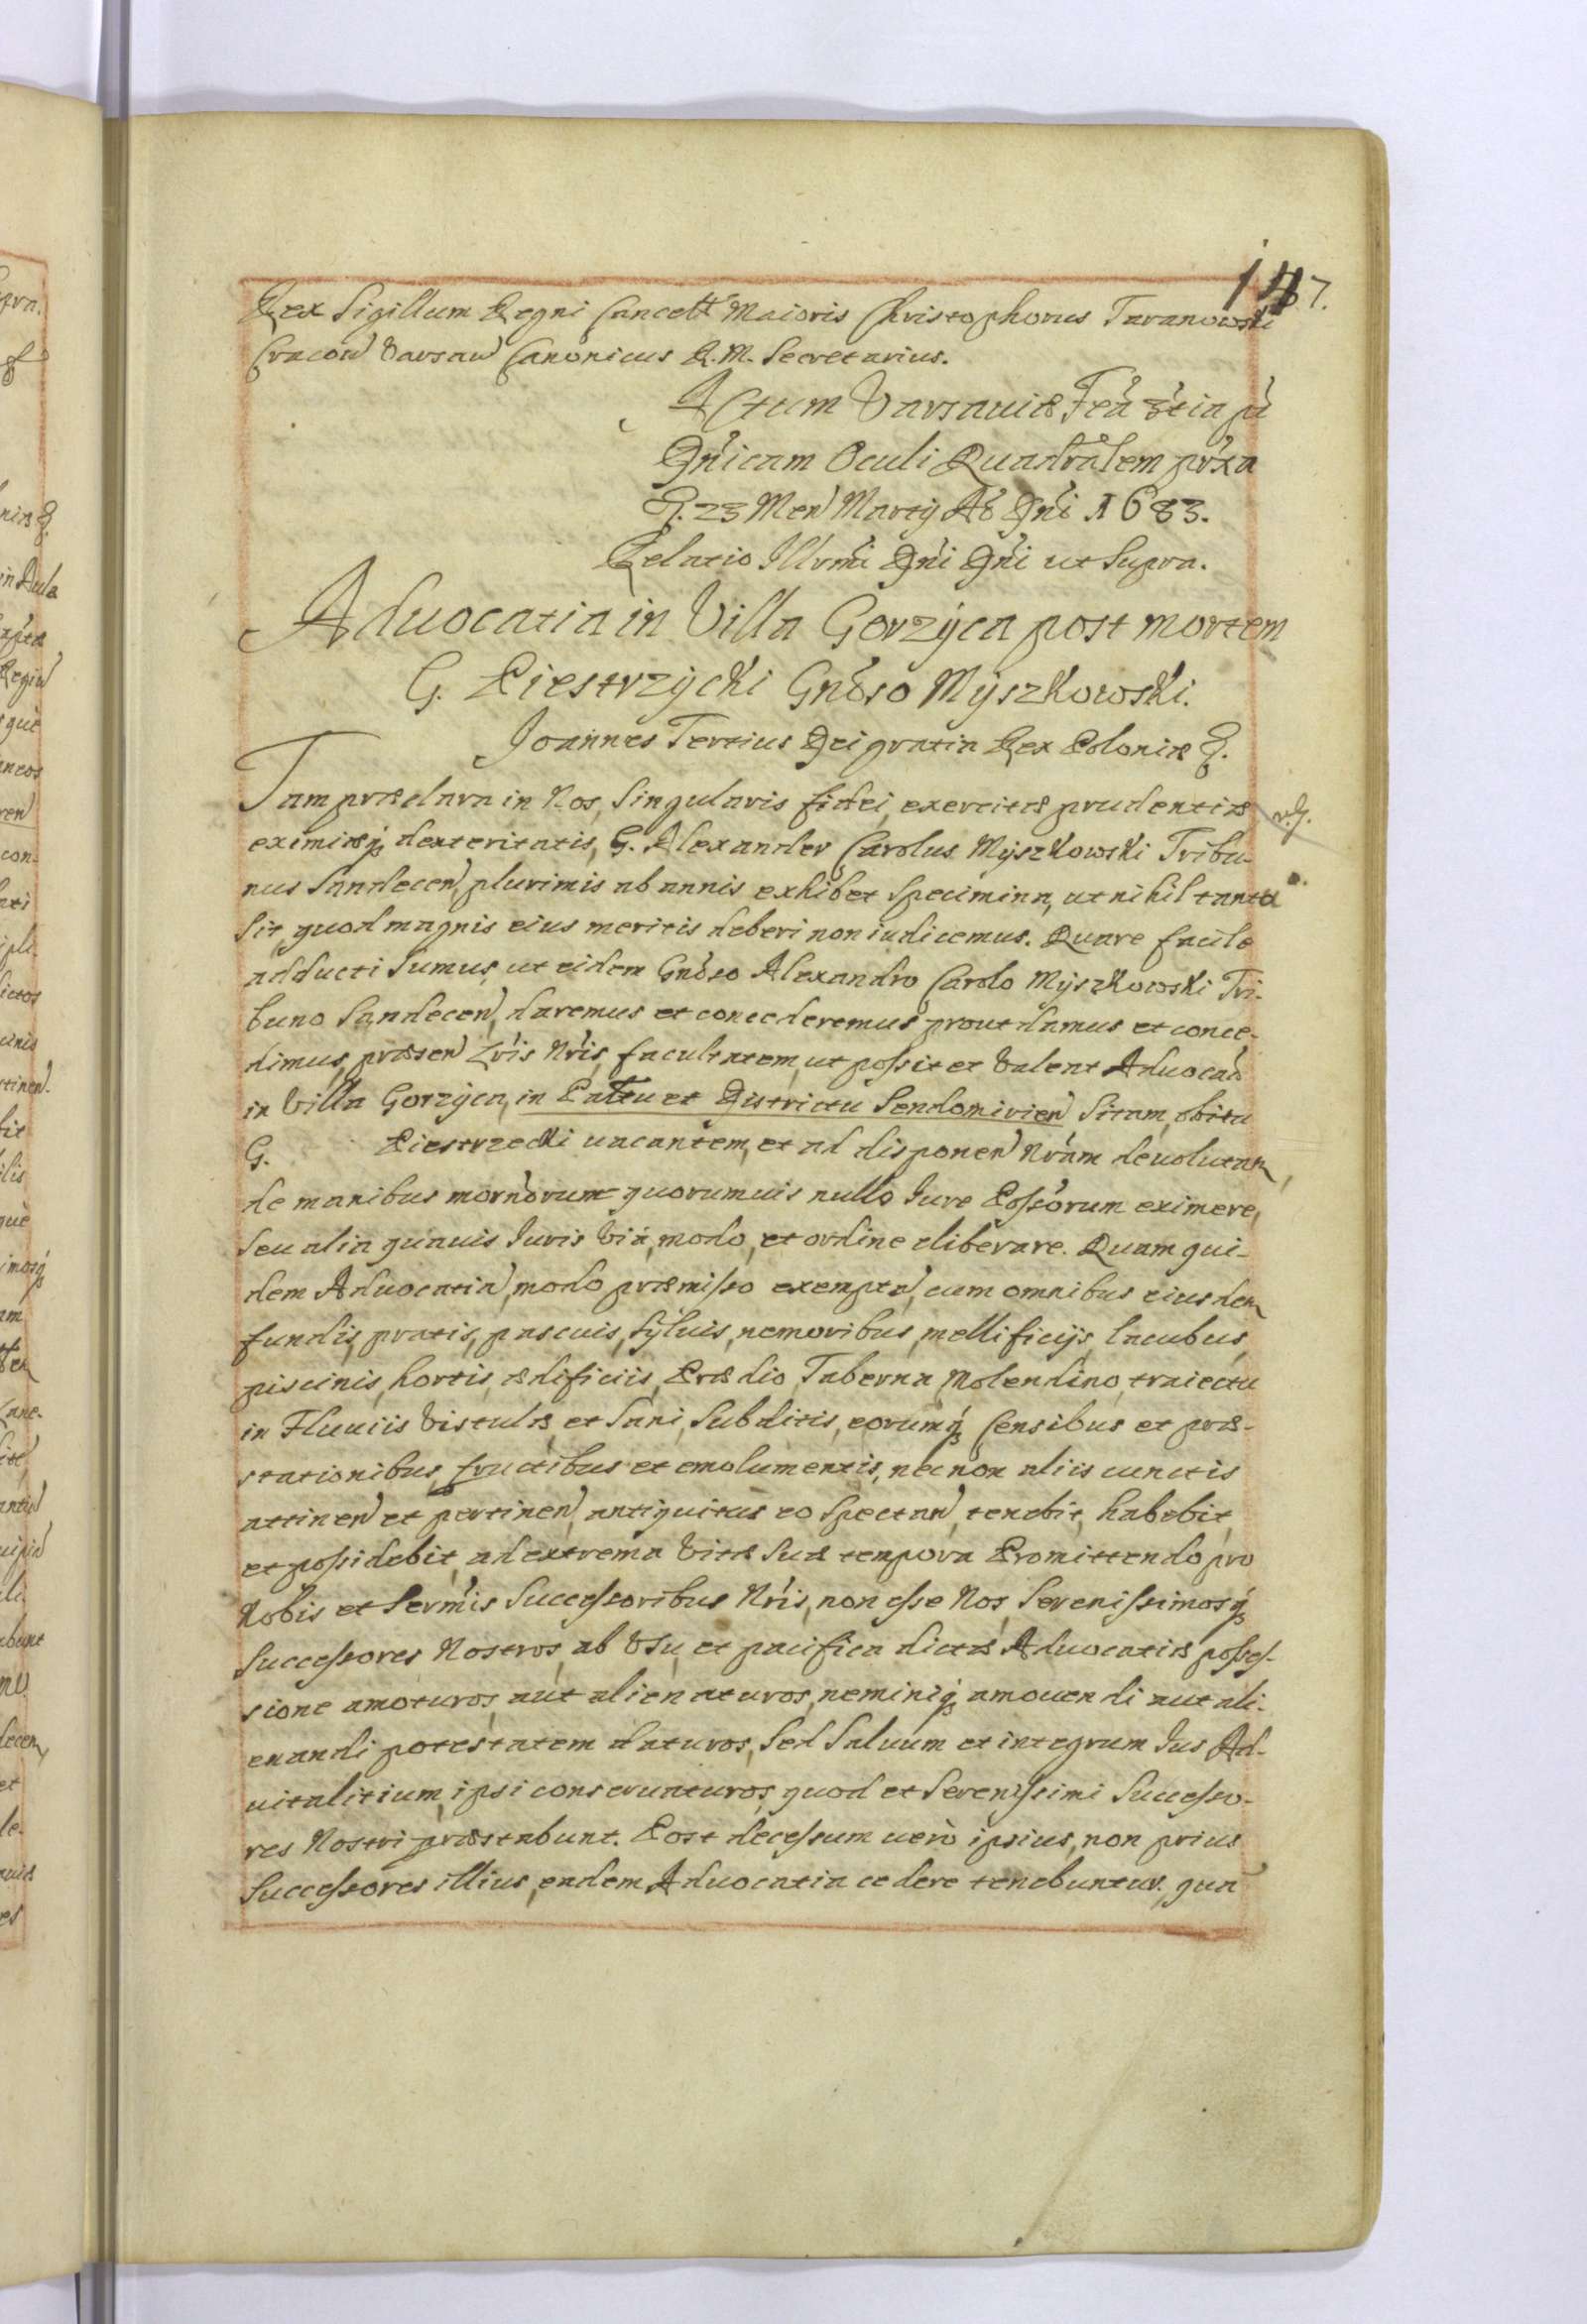 147.
Rex Sigillum Regni Cancell Maioris Christophorus Taranowski
Cracou Varsau Canonicus R. M. Secretarius.
Actum Varsauiæ Feâ 3tia pâ
Dnicam Oculi Quadralem prxa
D. 23 Men Martij Ao Dni 1683.
Relatio Illrmi Dni Dni ut Supra.
Aduocatia in Villa Gorzÿca post mortem
G. Piestrzÿcki Gnoso Mÿszkowski.
Joannes Tertius Dei gratia Rex Poloniæ &.
Tam præclara in Nos, Singularis fidei, exercitæ prudentiæ
eximiæq dexteritatis, G. Alexander Carolus Mÿszkowski Tribu-
nus Sandecen, plurimis ab annis exhibet Specimina, ut nihil tanta
Sit, quod magnis eius meritis deberi non iudicemus. Quare facile
adducti Sumus, ut eidem Gnoso Alexandro Carolo Mÿszkowski Tri-
buno Sandecen, daremus et concederemus prout damus et conce-
dimus, præsen Lris Nris, facultatem, ut possit et Valeat Aduocaã
in Villa Gorzÿca, in Pattu et Districtu Sendomirien, Sitam, obitu
G. Piestrzecki uacantem, et ad disponen Nram deuolutam
de manibus mornorum quorumuis nullo Jure Possorum eximere,
Seu alia quauis Juris Viâ, modo, et ordine eliberare. Quam qui-
dem Aduocatia, modo præmisso exempta, cum omnibus eiusdem
fundis, pratis, pascuis, Sÿluis, nemoribus, mellificijs, lacubus,
piscinis, hortis, ædificiis, Prædio, Taberna, Molendino, traiectu
in Fluuiis Vistulæ, et Sani, Subditis, eorumq Censibus et præ-
stationibus, fructibus et emolumentis, nec non aliis cunctis
attinen et pertinen, antiquitus eo Spectan, tenebit, habebit,
et possidebit, ad extrema Vitæ Suæ tempora Promittendo pro
Nobis et Sermis Successoribus Nris, non esse Nos, Serenissimosq
Successores Nostros, ab Vsu, et pacifica dictæ Aduocatiæ posses-
sione amoturos, aut alienaturos, neminiq amouendi aut ali-
enandi potestatem daturos, Sed Saluum et integrum Jus Ad-
uitalitium, ipsi conseruaturos, quod et Serenissimi Successo-
res Nostri præstabunt. Post decessum uerò ipsius, non prius
Successores illius, eadem Aduocatia cedere tenebuntur, qua